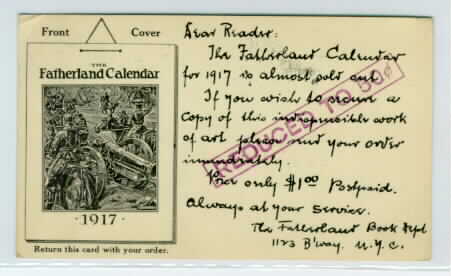 Front Cover
THE
Fatherland Calendar
·1917·
Return this card with your order.
Dear Reader:
The Fatherland Calendar
for 1917 is almost sold out.
If you wish to secure a
copy of this indispensible work
of art please send your order
immediately.
Price only $1.00 Postpaid.
Always at your service.
The Fatherland Book Dept
1123 B'way. N.Y.C.
REDUCED TO 50¢